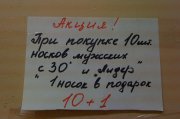 Акция!
При покупке 10шт.
носков мужских
"с 30" и "Лидер"
1 носок в подарок
10+1